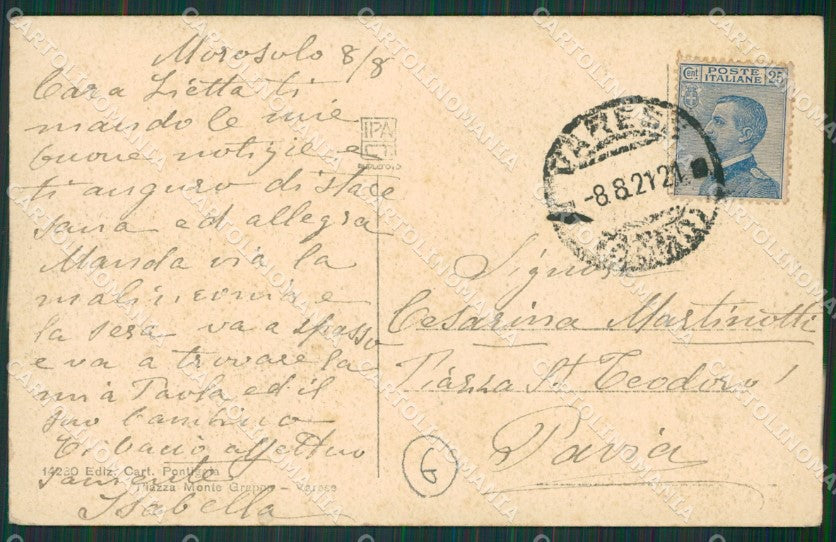 Morosolo 8/8
Cara Zietta ti
mando le mie
buone notizie e
ti auguro di stare
sana ed allegra
Manda via la
malinconia e
la sera va a spasso
e va a trovare la
mia Paola ed il
suo bambino
Ti bacio affettuo
samente
Isabella
14230 Ediz. Cart.
Piazza Monte Grappa - Varese
IPA
CT
VARESE
-8.8.21 21
Cent POSTE ITALIANE 25
Signora
Cesarina Martinotti
Piazza St. Teodoro 1
Pavia
G
CARTOLINOMANIA